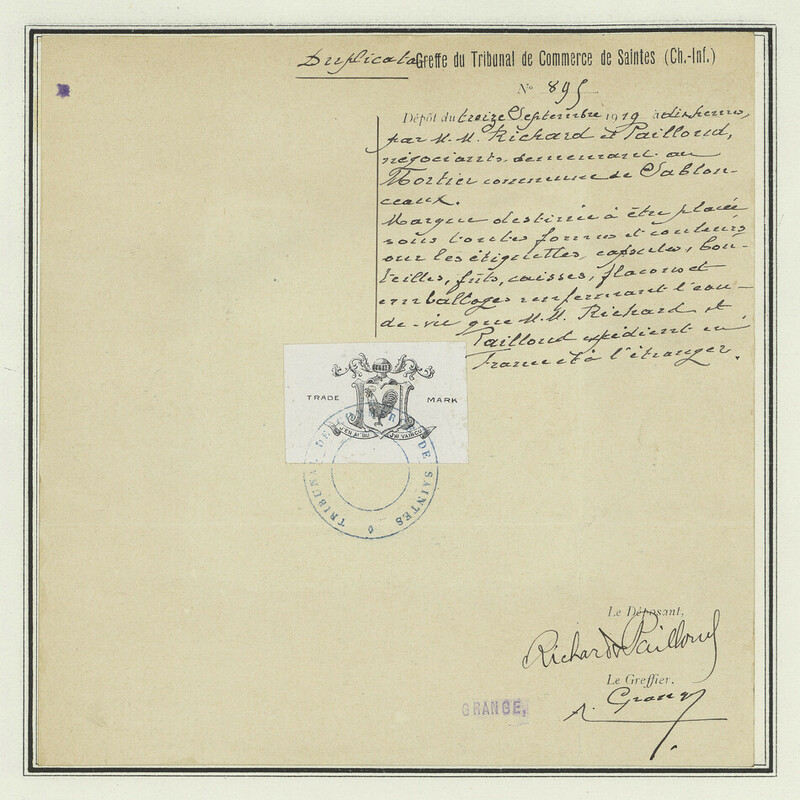 Duplicata Greffe du Tribunal de Commerce de Saintes (Ch.-Inf.)
N° 895
Dépôt du treize Septembre 1919 à dix heures,
par M.M. Richard et Pailloud,
négociants demeurant au
Mortier commune de Sablon-
ceaux.
Marque destinée à être placée
sous toutes formes et couleurs
sur les étiquettes, capsules, bou-
teilles, fûts, caisses, flacons et
emballages renfermant l'eau-
de-vie que M.M. Richard et
Pailloud expédient en
France et à l'étranger.
TRADE MARK
J'EN AI BU J'AI VAINCU
TRIBUNAL DE COMMERCE DE SAINTES
Le Déposant,
Richard & Pailloud
Le Greffier.
A. Grange
GRANGE,